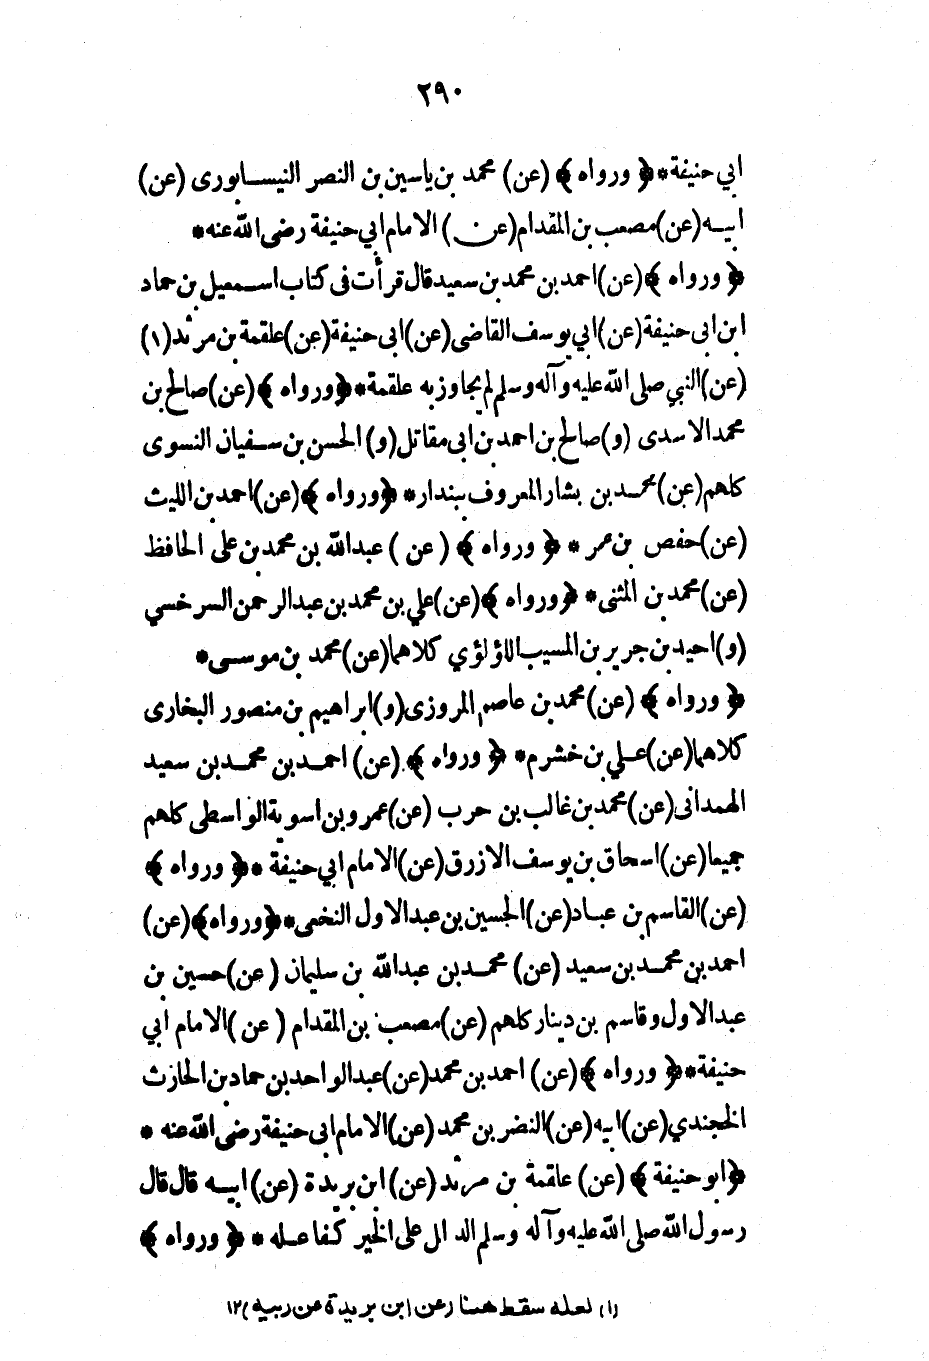 ٢٩٠
ابي حنيفة * ﴿ ورواه ﴾ (عن) محمد بن ياسين بن النصر النيسابورى (عن)
ابيه (عن) مصعب بن المقدام (عن) الامام ابي حنيفة رضى الله عنه *
﴿ ورواه ﴾ (عن) احمد بن محمد بن سعيد قال قرأت فى كتاب اسمعيل بن حماد
ابن ابى حنيفة (عن) ابي يوسف القاضى (عن) ابى حنيفة (عن) علقمة بن مرثد (١)
(عن) النبي صلى الله عليه وآله وسلم لم يجاوز به علقمة * ﴿ ورواه ﴾ (عن) صالح بن
محمد الاسدى (و) صالح بن احمد بن ابى مقاتل (و) الحسن بن سفيان النسوى
كلهم (عن) محمد بن بشار المعروف ببندار * ﴿ ورواه ﴾ (عن) احمد بن الليث
(عن) حفص بن عمر * ﴿ ورواه ﴾ (عن) عبدالله بن محمد بن على الحافظ
(عن) محمد بن المثنى * ﴿ ورواه ﴾ (عن) علي بن محمد بن عبدالرحمن السرخسي
(و) احيد بن جرير بن المسيب اللؤلؤي كلاهما (عن) محمد بن موسى *
﴿ ورواه ﴾ (عن) محمد بن عاصم المروزى (و) ابراهيم بن منصور البخارى
كلاهما (عن) علي بن خشرم * ﴿ ورواه ﴾ (عن) احمد بن محمد بن سعيد
الهمدانى (عن) محمد بن غالب بن حرب (عن) عمرو بن اسوية الواسطى كلهم
جميعا (عن) اسحاق بن يوسف الازرق (عن) الامام ابي حنيفة * ﴿ ورواه ﴾
(عن) القاسم بن عباد (عن) الحسين بن عبدالاول النخعى * ﴿ ورواه ﴾ (عن)
احمد بن محمد بن سعيد (عن) محمد بن عبدالله بن سليمان (عن) حسين بن
عبدالاول وقاسم بن دينار كلهم (عن) مصعب بن المقدام (عن) الامام ابي
حنيفة * ﴿ ورواه ﴾ (عن) احمد بن محمد (عن) عبدالواحد بن حماد بن الحارث
الخجندي (عن) ابيه (عن) النضر بن محمد (عن) الامام ابى حنيفة رضى الله عنه *
﴿ ابو حنيفة ﴾ (عن) علقمة بن مرثد (عن) ابن بريدة (عن) ابيه قال قال
رسول الله صلى الله عليه وآله وسلم الدال على الخير كفاعله * ﴿ ورواه ﴾
(١) لعله سقط همنا (عن ابن بريدة عن ربيه) ١٢